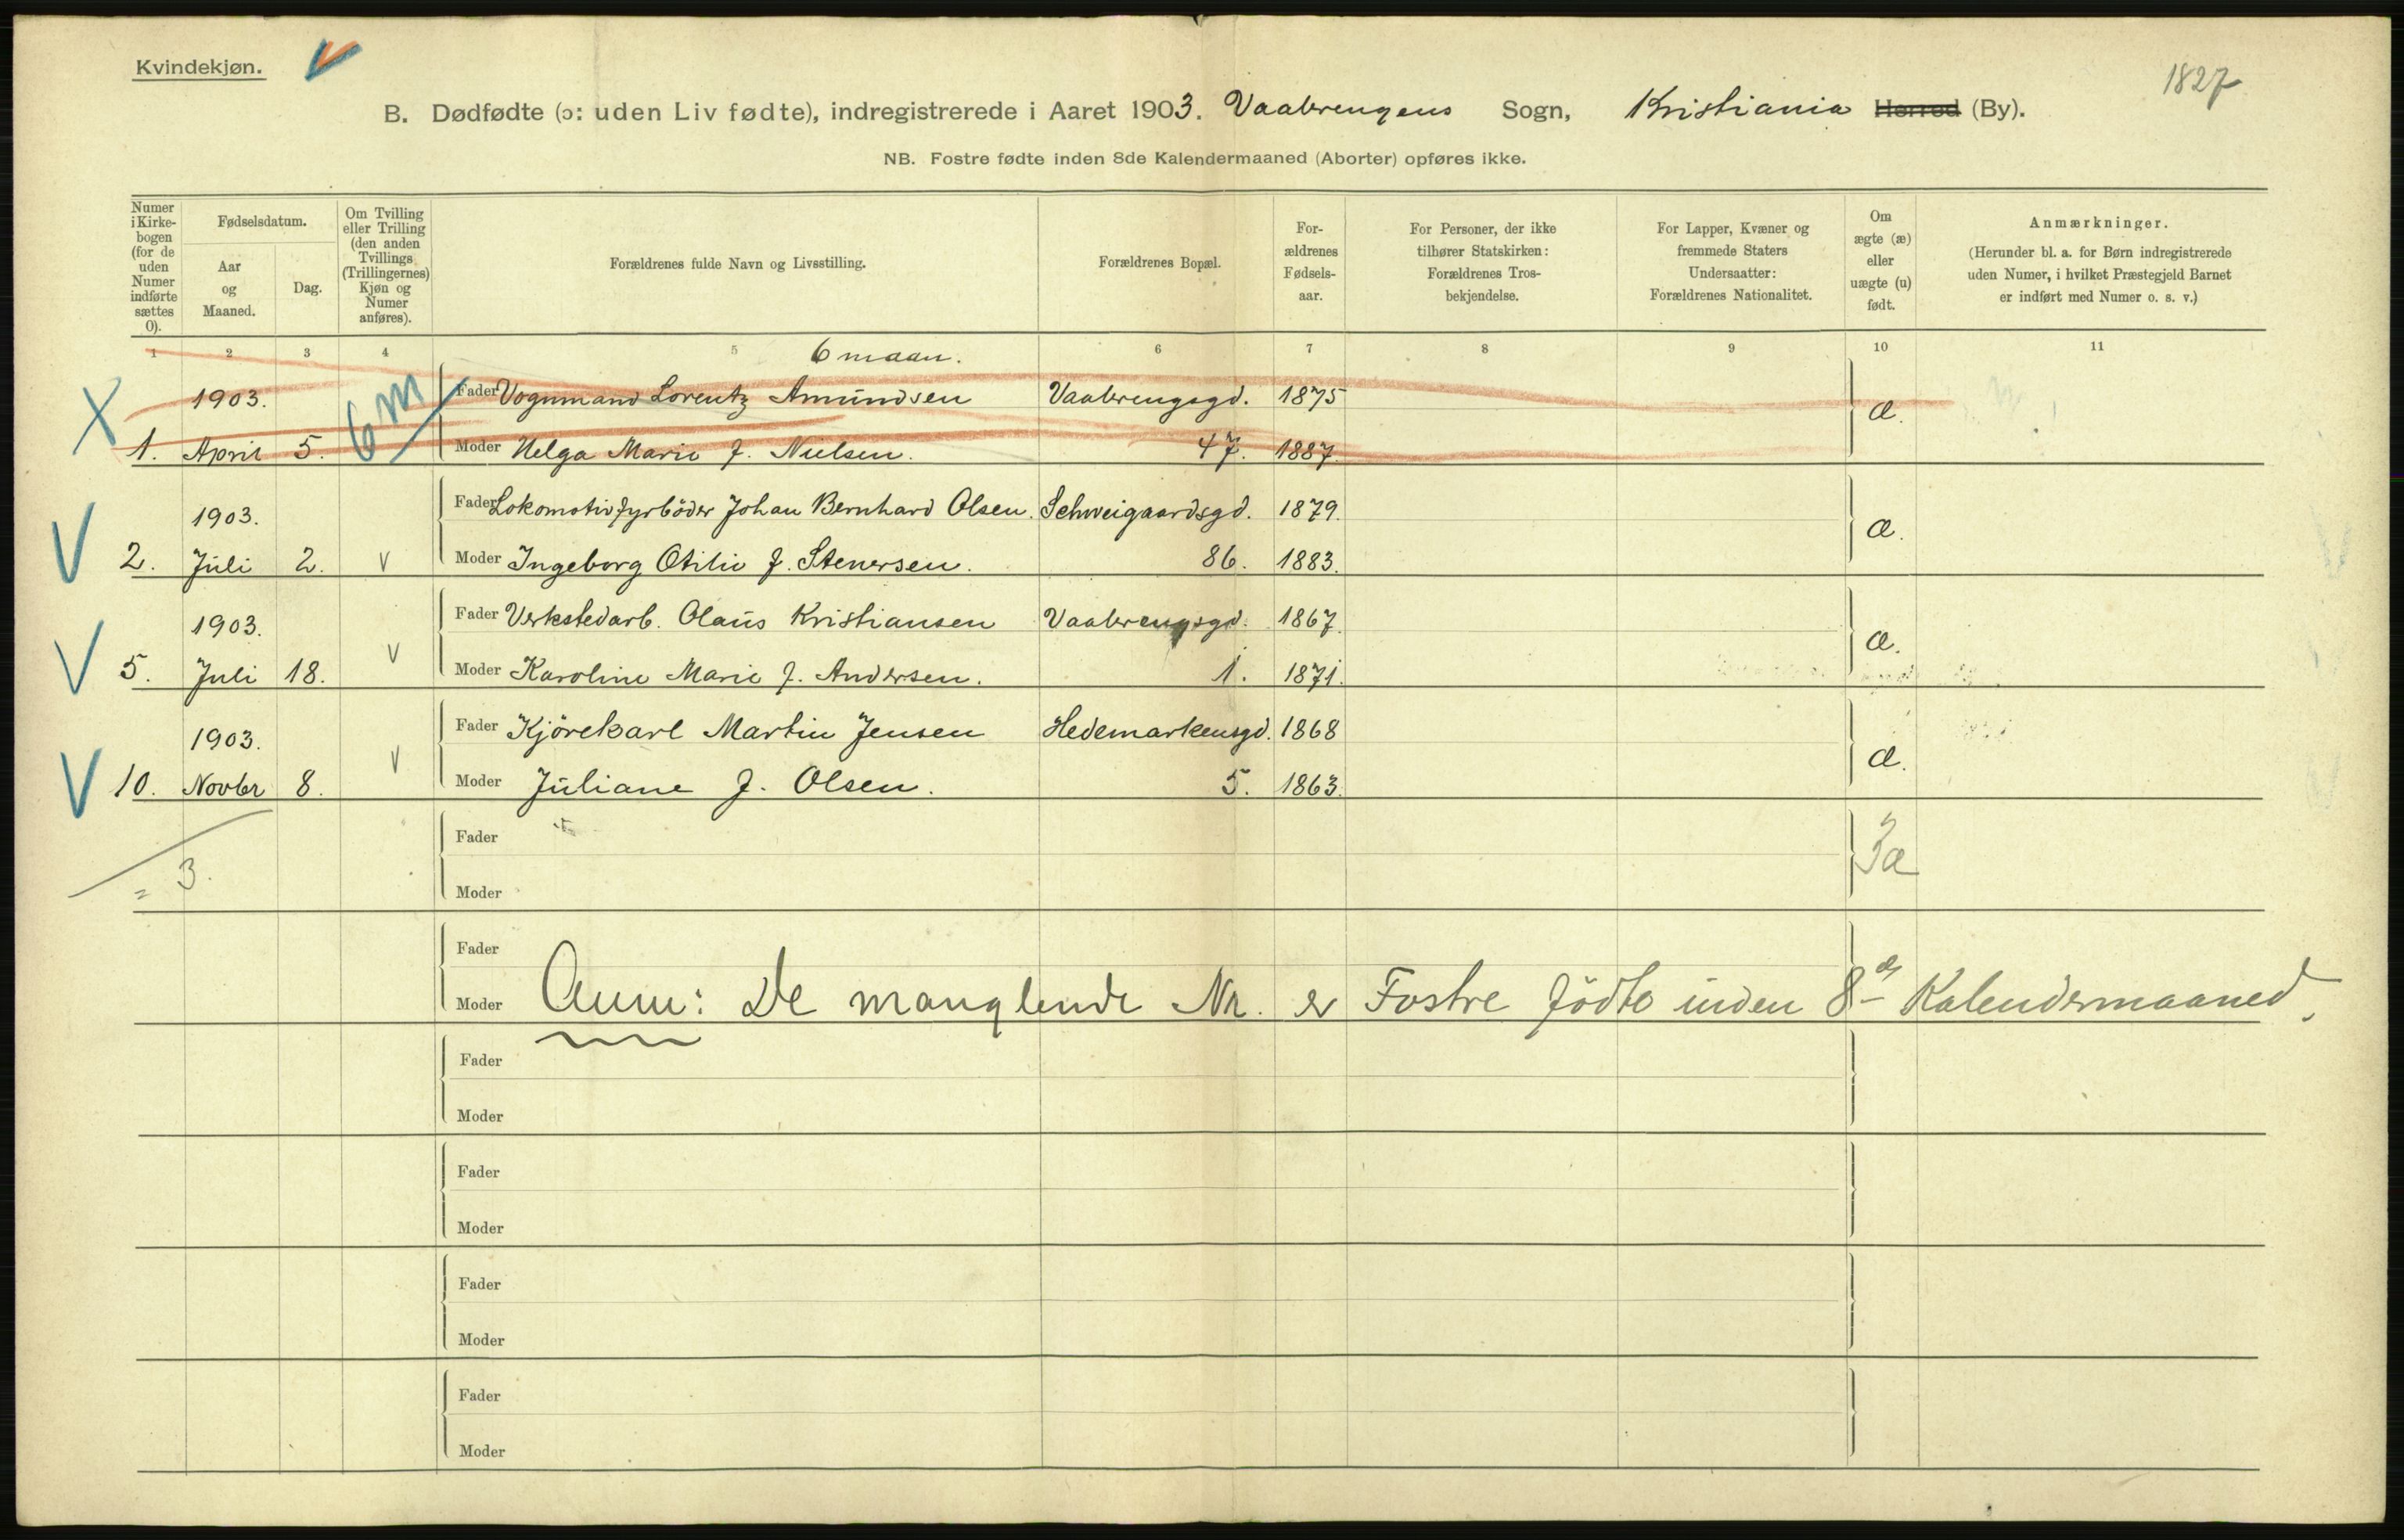 Kvindekjøn. V
1827
B. Dødfødte (ɔ: uden Liv fødte), indregistrerede i Aaret 1903. Vaalerengens Sogn, Kristiania Herred (By).
NB. Fostre fødte inden 8de Kalendermaaned (Aborter) opføres ikke.
Numer i Kirke-bogen (for de uden Numer indførte sættes 0).
Fødselsdatum.
Aar og Maaned.
Dag.
Om Tvilling eller Trilling (den anden Tvillings (Trillingernes) Kjøn og Numer anføres).
Forældrenes fulde Navn og Livsstilling.
Forældrenes Bopæl.
For-ældrenes Fødsels-aar.
For Personer, der ikke tilhører Statskirken: Forældrenes Tros-bekjendelse.
For Lapper, Kvæner og fremmede Staters Undersaatter: Forældrenes Nationalitet.
Om ægte (æ) eller uægte (u) født.
Anmærkninger.
(Herunder bl. a. for Børn indregistrerede uden Numer, i hvilket Præstegjeld Barnet er indført med Numer o. s. v.)
1 2 3 4 5 6 7 8 9 10 11
6 maan.
X 1903. 6 m Fader Vognmand Lorentz Amundsen Vaalerengsgd. 1875 æ.
1. April 5. Moder Helga Marie f. Nielsen. 47. 1887.
V 1903. Fader Lokomotivfyrböder Johan Bernhard Olsen. Schweigaardsgd. 1879. æ.
2. Juli 2. V Moder Ingeborg Otilie f. Stenersen. 86. 1883.
V 1903. Fader Verkstedarb. Olaus Kristiansen Vaalerengsgd. 1867. æ.
5. Juli 18. V Moder Karoline Marie f. Andersen. 1. 1871.
V 1903. Fader Kjörekarl Martin Jensen Hedemarkensgd. 1868 æ.
10. Novbr 8. V Moder Juliane f. Olsen. 5. 1863.
Fader
= 3. 3æ
Moder
Fader
Moder Anm: De manglende Nr. er Fostre födte inden 8de Kalendermaaned.
Fader
Moder
Fader
Moder
Fader
Moder
Fader
Moder